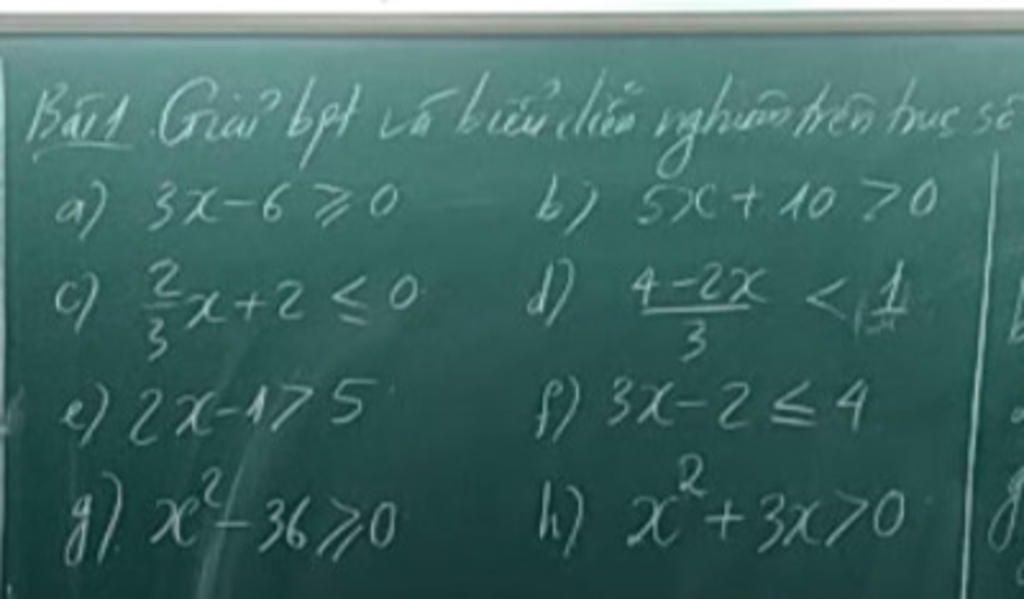 Bài 1. Giải bpt và biểu diễn nghiệm trên trục số
a) 3x-6 ⩾ 0 b) 5x + 10 > 0
c) 2/3 x + 2 ≤ 0 d) (4-2x)/3 < 1
e) 2x-1 > 5 f) 3x-2 ≤ 4
g) x² - 36 ⩾ 0 h) x² + 3x > 0